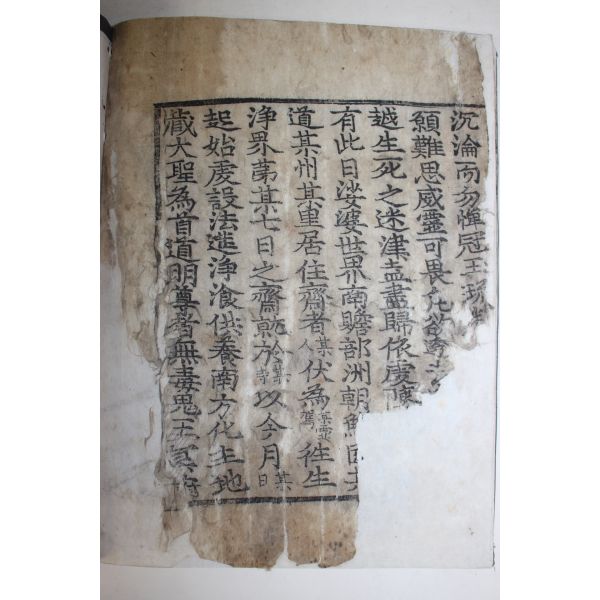 沉淪而勿憚冠王
願難思威靈可畏
越生死之迷津盡歸依處
有此日娑婆世界南贍部洲朝鮮國某
道某州某里居住齋者某人伏為某靈駕往生
淨界苐某七日之齋就於某寺以今月某日
起始處設法進淨飡供養南方化主地
藏大聖為首道明尊者無毒鬼王冥府